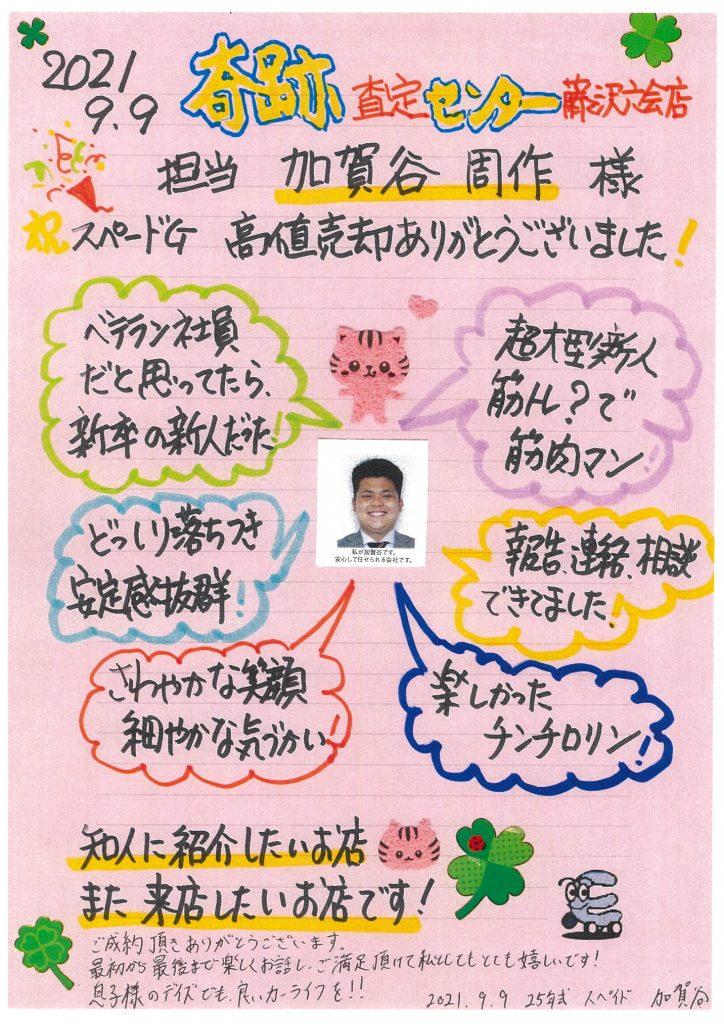 2021
9.9
奇跡 査定センター 藤沢六会店
担当 加賀谷 周作 様
祝 スペードG 高値売却ありがとうございました!
ベテラン社員
だと思ってたら、
新卒の新人だった!
超大型新人
筋トレ?で
筋肉マン
私が加賀谷です。
安心して任せられる会社です。
どっしり落ちつき
安定感抜群!
報告、連絡、相談
できてました!
さわやかな笑顔
細やかな気づかい!
楽しかった
チンチロリン!
知人に紹介したいお店
また来店したいお店です!
ご成約頂きありがとうございます。
最初から最後まで楽しくお話し、ご満足頂けて私としてもとても嬉しいです!
息子様のデイズでも、良いカーライフを!!
2021.9.9 25年式 スペイド 加賀谷